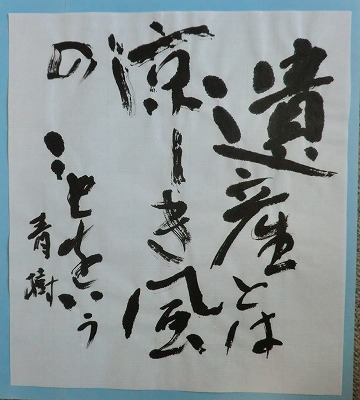 遺産とは
涼しき風
の ことをいう
青樹